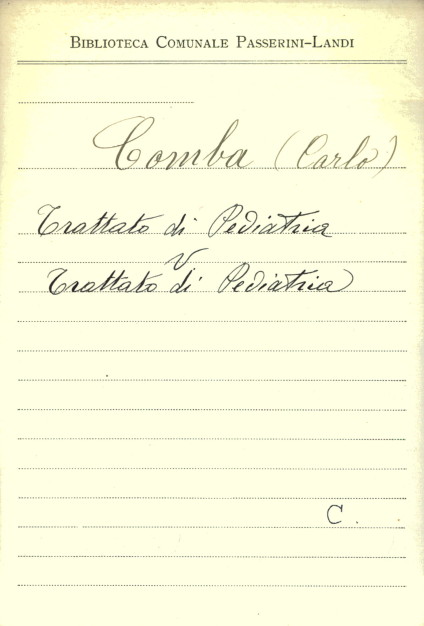 BIBLIOTECA COMUNALE PASSERINI-LANDI
Comba (Carlo)
Trattato di Pediatria
V
Trattato di Pediatria
C.